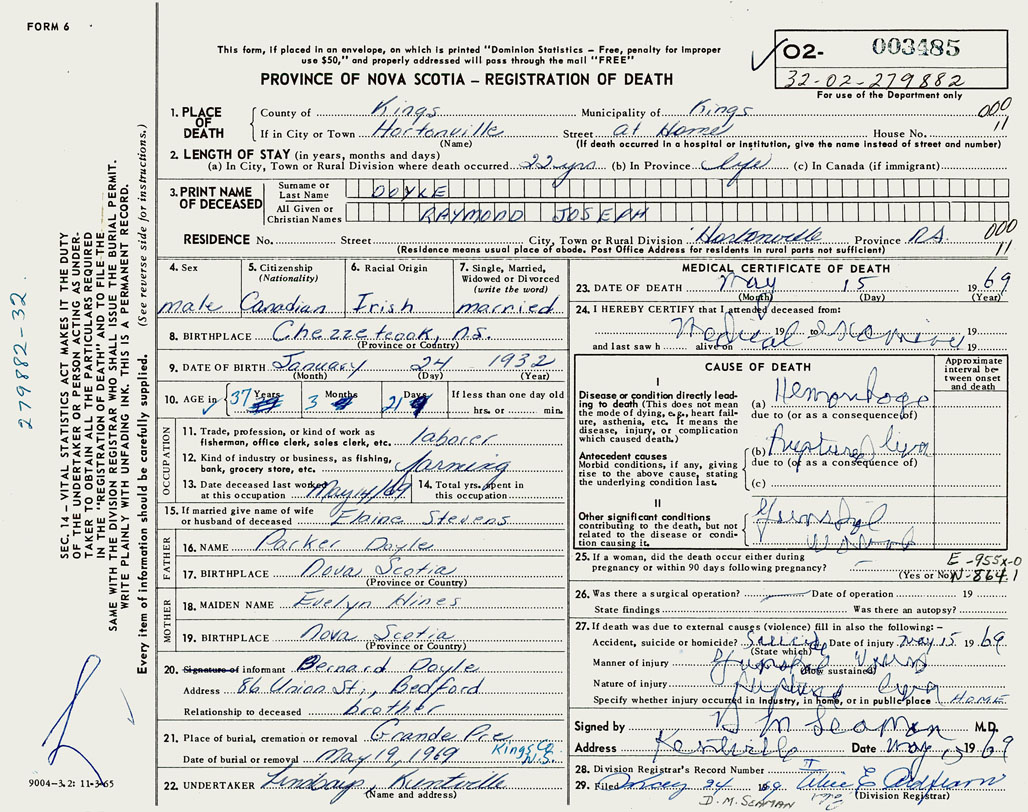 FORM 6
This form, if placed in an envelope, on which is printed "Dominion Statistics – Free, penalty for improper
use $50," and properly addressed will pass through the mail "FREE"
PROVINCE OF NOVA SCOTIA – REGISTRATION OF DEATH
O2- 003485
32-02-279882
For use of the Department only
1. PLACE OF DEATH
County of Kings Municipality of Kings 000
If in City or Town Hortonville Street at Home House No. 11
(Name) (If death occurred in a hospital or institution, give the name instead of street and number)
2. LENGTH OF STAY (in years, months and days)
(a) In City, Town or Rural Division where death occurred 22 yrs (b) In Province life (c) In Canada (if immigrant)
3. PRINT NAME OF DECEASED
Surname or Last Name DOYLE
All Given or Christian Names RAYMOND JOSEPH
RESIDENCE No. Street City, Town or Rural Division Hortonville Province 000
(Residence means usual place of abode. Post Office Address for residents in rural parts not sufficient) 11
4. Sex
male
5. Citizenship
(Nationality)
Canadian
6. Racial Origin
Irish
7. Single, Married,
Widowed or Divorced
(write the word)
married
8. BIRTHPLACE Chezzetcook, N.S.
(Province or Country)
9. DATE OF BIRTH January 24 1932
(Month) (Day) (Year)
10. AGE in 37 Years 3 Months 21 Days If less than one day old
hrs. or min.
OCCUPATION
11. Trade, profession, or kind of work as
fisherman, office clerk, sales clerk, etc. laborer
12. Kind of industry or business, as fishing,
bank, grocery store, etc. farming
13. Date deceased last worked
at this occupation May 14/69
14. Total yrs. spent in
this occupation
15. If married give name of wife
or husband of deceased Elaine Stevens
FATHER
16. NAME Parker Doyle
17. BIRTHPLACE Nova Scotia
(Province or Country)
MOTHER
18. MAIDEN NAME Evelyn Hines
19. BIRTHPLACE Nova Scotia
(Province or Country)
20. Signature of informant Bernard Doyle
Address 86 Union St., Bedford
Relationship to deceased brother
21. Place of burial, cremation or removal Grande Pre
Kings Co. N.S.
Date of burial or removal May 19, 1969
22. UNDERTAKER Lindsay, Kentville
(Name and address)
MEDICAL CERTIFICATE OF DEATH
23. DATE OF DEATH May 15 1969
(Month) (Day) (Year)
24. I HEREBY CERTIFY that I attended deceased from:
19 to 19
Medical Examiner
and last saw h alive on 19
CAUSE OF DEATH
Approximate
interval be-
tween onset
and death
I
Disease or condition directly lead-
ing to death (This does not mean
the mode of dying, e.g., heart fail-
ure, asthenia, etc. It means the
disease, injury, or complication
which caused death.)
(a) Hemorrhage
due to (or as a consequence of)
Antecedent causes
Morbid conditions, if any, giving
rise to the above cause, stating
the underlying condition last.
(b) Ruptured liver
due to (or as a consequence of)
(c)
II
Other significant conditions
contributing to the death, but not
related to the disease or condi-
tion causing it.
Gunshot
Wound
25. If a woman, did the death occur either during
pregnancy or within 90 days following pregnancy? –
(Yes or No)
E -955x-0
N-864.1
26. Was there a surgical operation? Date of operation 19
State findings Was there an autopsy?
27. If death was due to external causes (violence) fill in also the following:–
Accident, suicide or homicide? Suicide Date of injury May 15 1969
(State which)
Manner of injury Gunshot Wound
(How sustained)
Nature of injury Ruptured liver
Specify whether injury occurred in industry, in home, or in public place HOME
Signed by D M Seaman M.D.
Address Kentville Date May 15 69
28. Division Registrar's Record Number
29. Filed 24 1969
(Division Registrar)
D. M. SEAMAN
SEC. 14 – VITAL STATISTICS ACT MAKES IT THE DUTY
OF THE UNDERTAKER OR PERSON ACTING AS UNDER-
TAKER TO OBTAIN ALL THE PARTICULARS REQUIRED
IN THE "REGISTRATION OF DEATH" AND TO FILE THE
SAME WITH THE DIVISION REGISTRAR WHO SHALL ISSUE THE BURIAL PERMIT.
WRITE PLAINLY WITH UNFADING INK. THIS IS A PERMANENT RECORD.
Every item of information should be carefully supplied. (See reverse side for instructions.)
279882-32
9004-3.2: 11-3-65